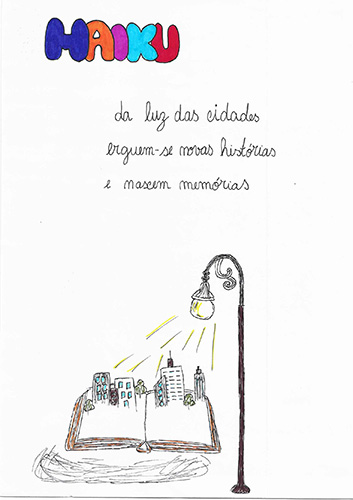 HAIKU
da luz das cidades
erguem-se novas histórias
e nascem memórias